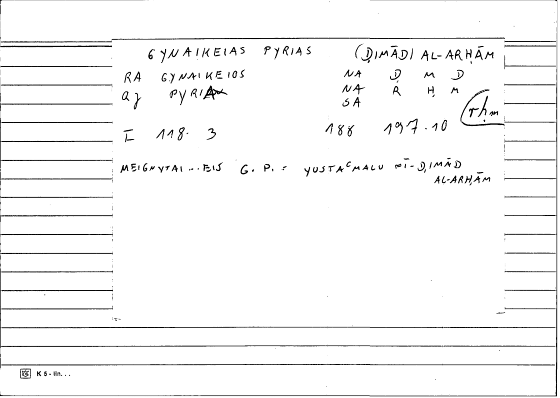 GYNAIKEIAS PYRIAS (ḌIMĀD) AL-ARḤĀM
RA GYNAIKEIOS NA Ḍ M D
aj PYRIA NA R Ḥ M
SA
rḥm
I 118. 3 188 197.10
MEIGNYTAI ... EIS G. P. = YUSTAᶜMALU FĪ-ḌIMĀD
AL-ARḤĀM
K 5 - lin. . .